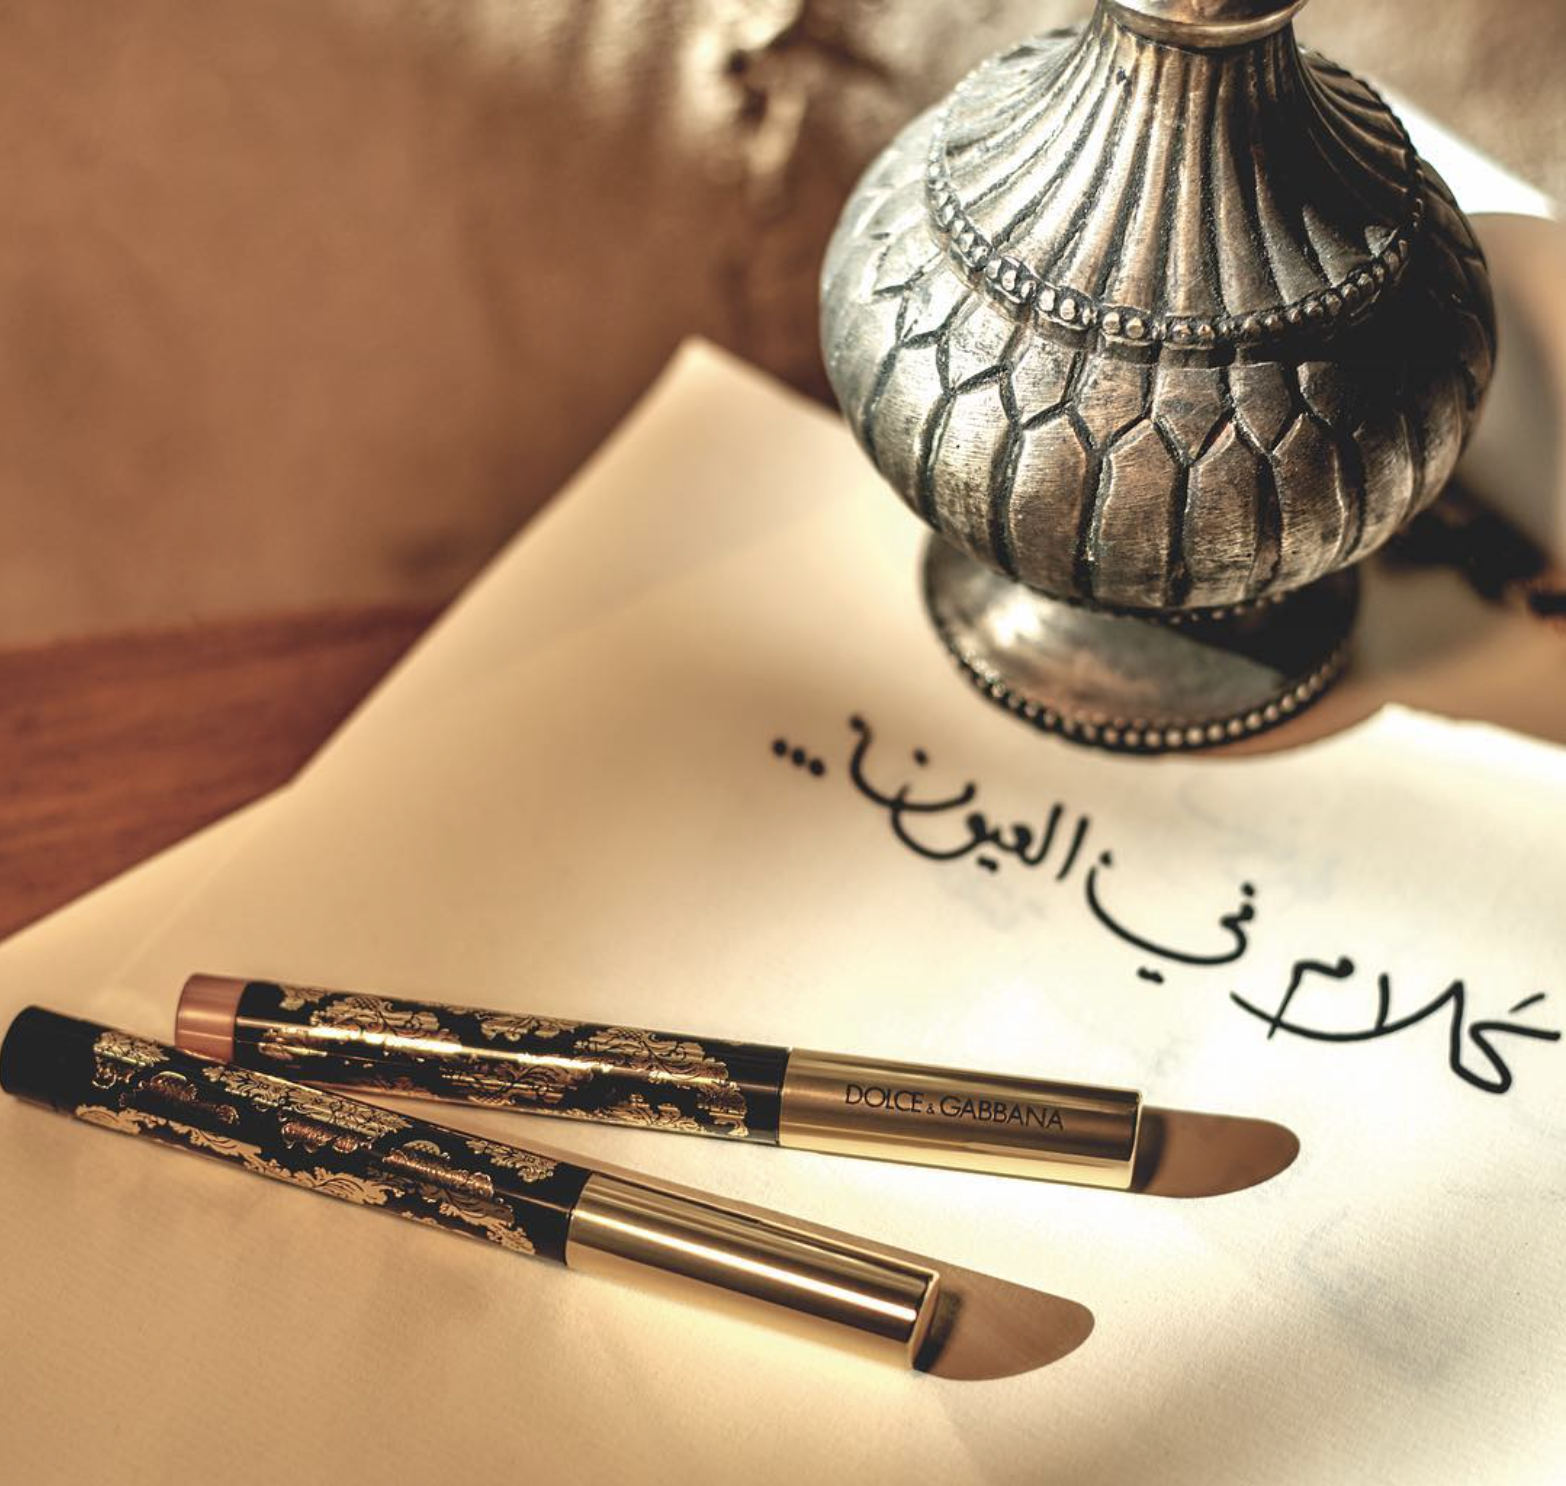 كلام في العيون...
DOLCE & GABBANA